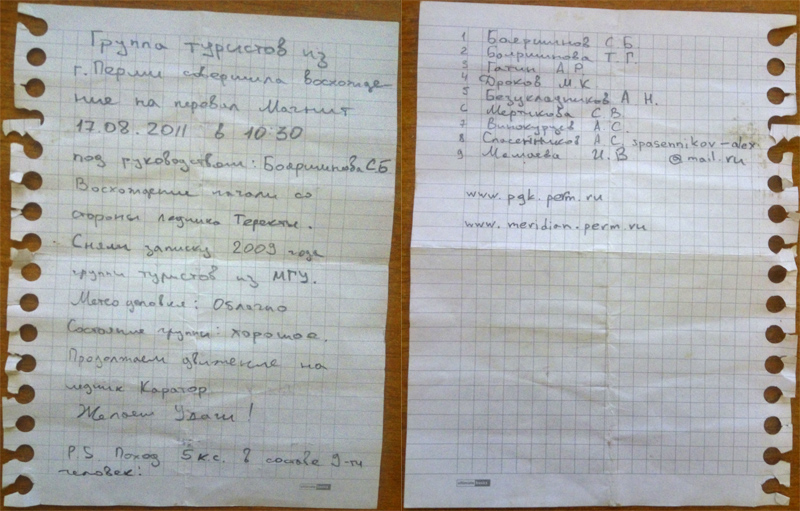 Группа туристов из
г. Перми совершила восхожде-
ние на перевал Магнит
17.08.2011 в 10:30
под руководством: Бояршинова С.Б
Восхождение начали со
стороны ледника Теректы.
Сняли записку 2009 года
группы туристов из МГУ.
Метео условия: Облачно
Состояние группы: хорошое.
Продолжаем движение на
ледник Каратор
Желаем Удачи!
P.S. Поход 5 к.с. в составе 9-ти
человек:
1 Бояршинов С.Б.
2 Бояршинова Т.Г.
3 Гатин А.Р.
4 Фроков М.К
5 Безукладников А Н.
6 Мертякова С.В.
7 Винокурцев А.С.
8 Спасенников А.С. spasennikov-alex
@mail.ru
9 И.В
www.pgk.perm.ru
www.meridian.perm.ru